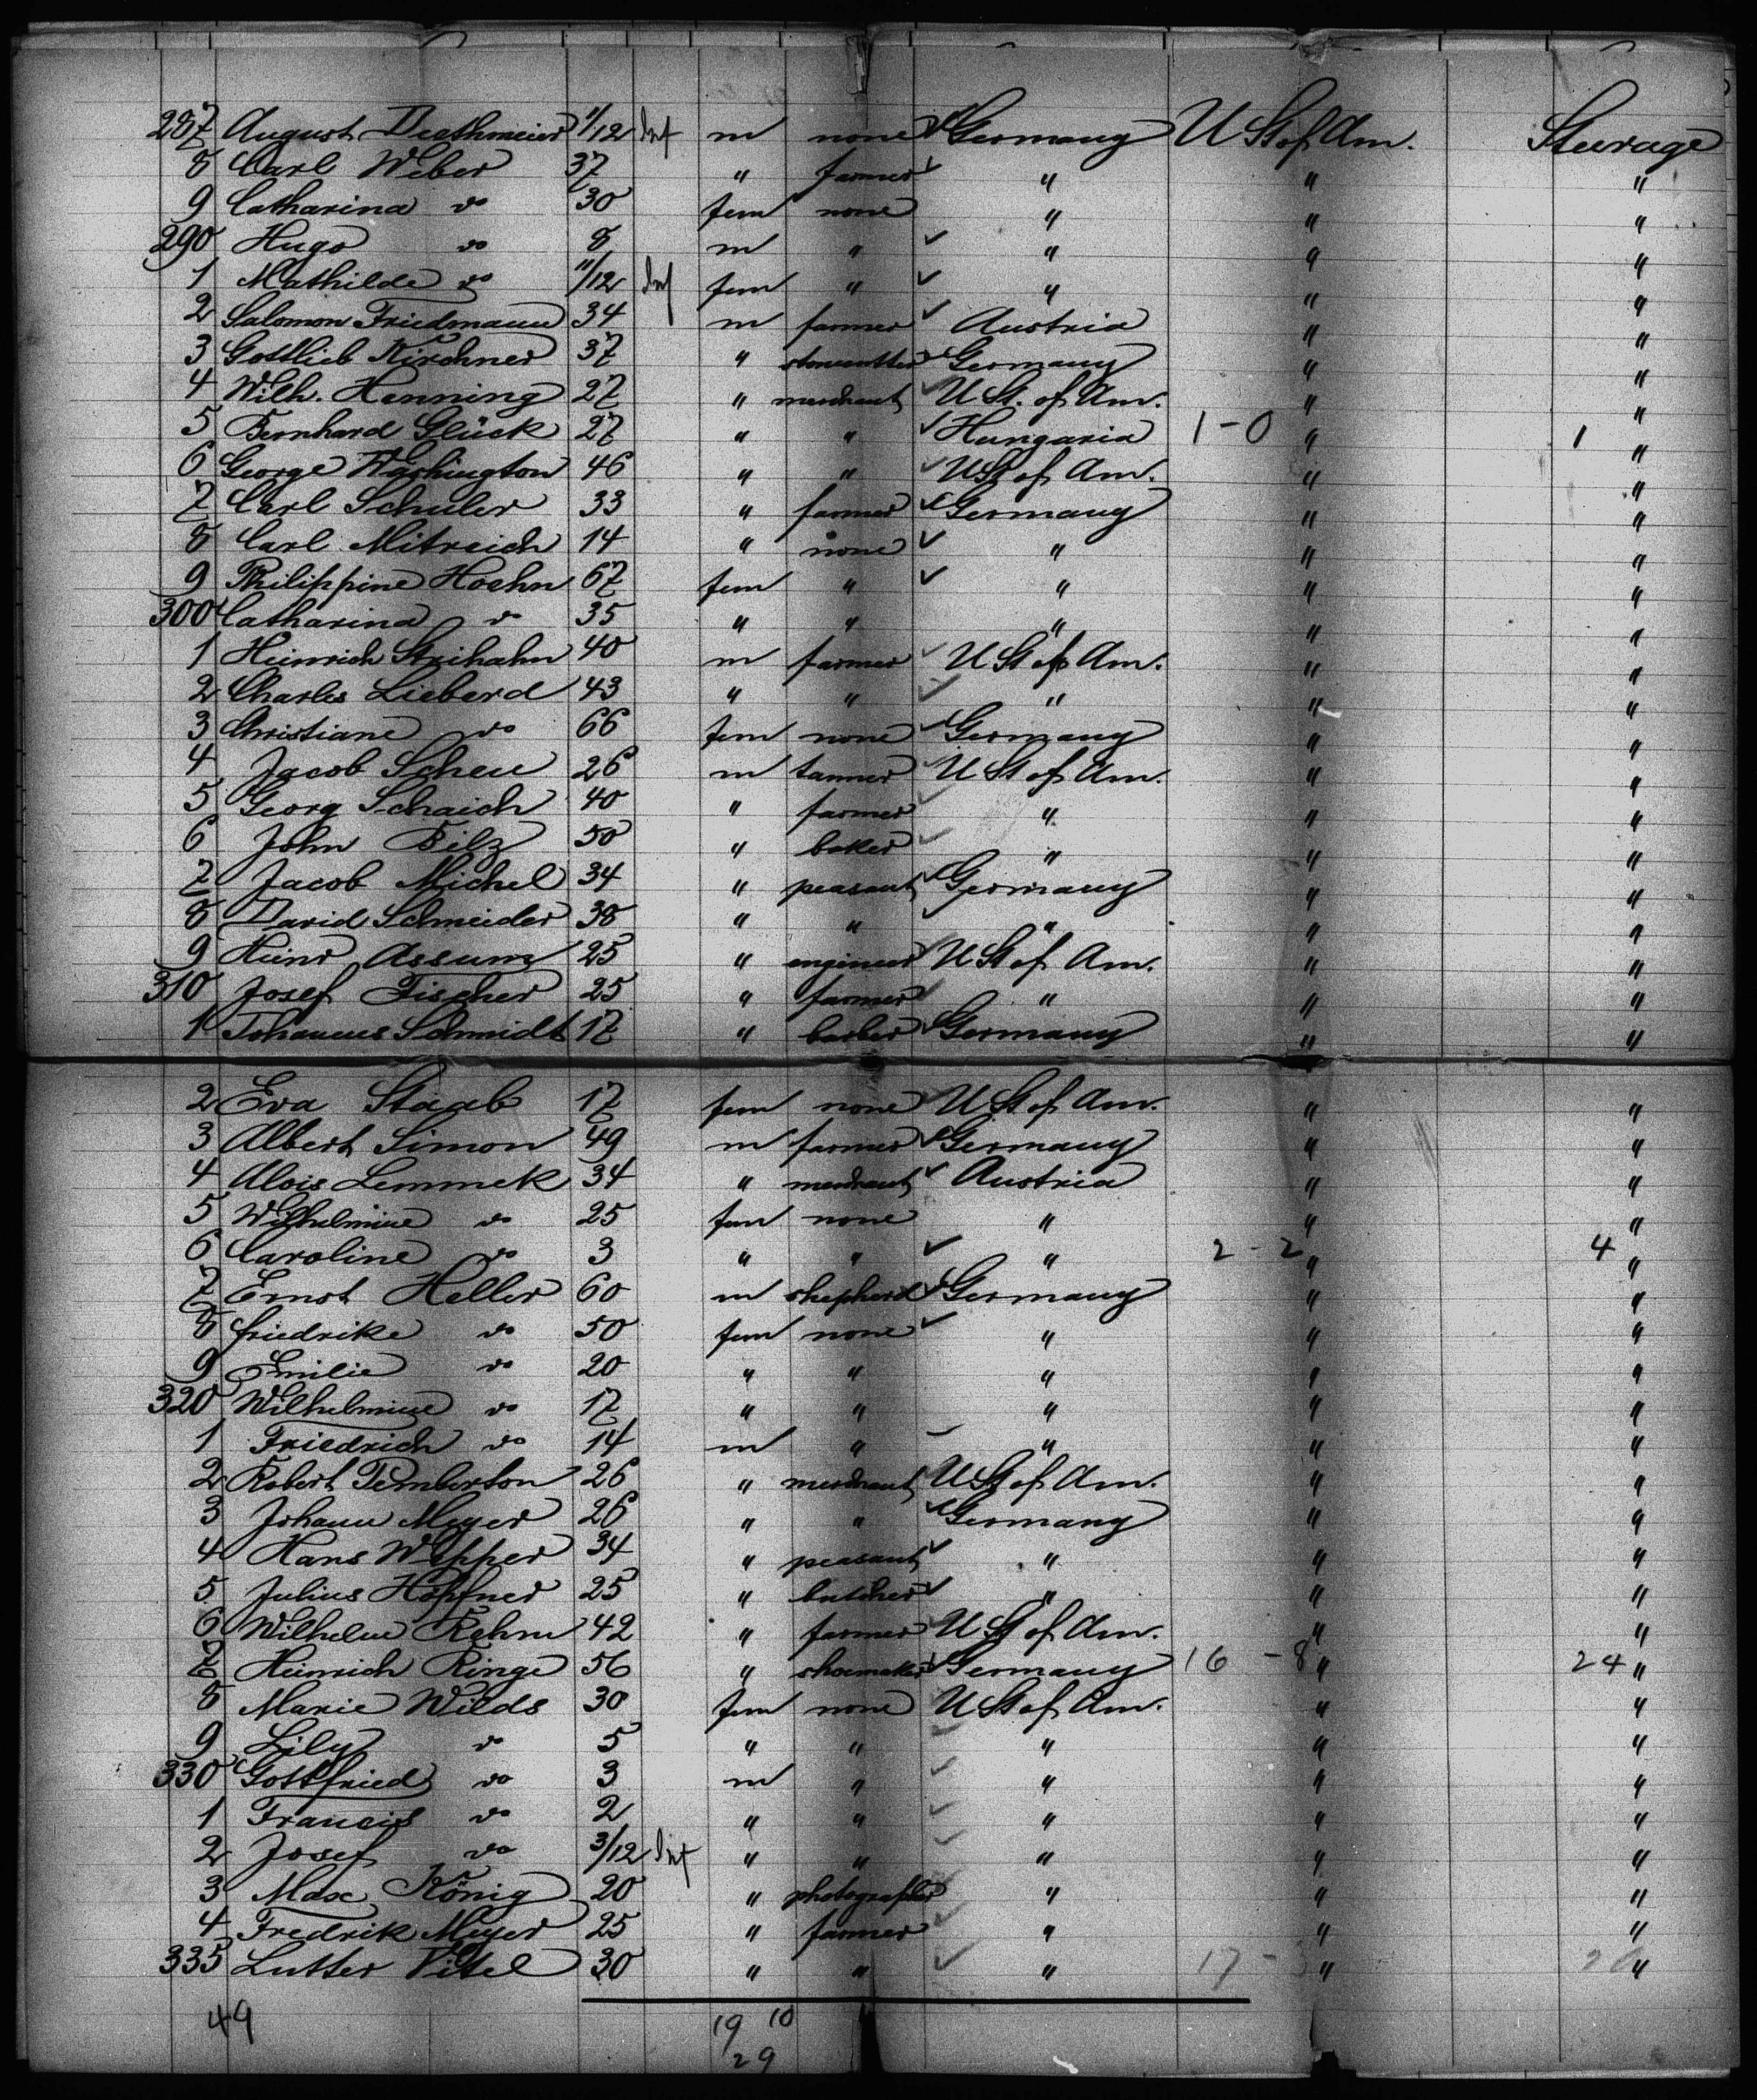 287 August Diethmeier 11/12 Inf m none Germany U St of Am. Steerage
8 Carl Weber 37 " farmer " " "
9 Catharina do 30 fem none " " "
290 Hugo do 8 m " " " "
1 Mathilde do 11/12 Inf fem " " " "
2 Salomon Friedmann 34 m farmer Austria " "
3 Gottlieb Kirchner 37 " stonecutter Germany " "
4 Wilh. Henning 27 " merchant U St. of Am. " "
5 Bernhard Glück 27 " " Hungaria 1-0 " 1 "
6 George Washington 46 " " U St of Am. " "
7 Carl Schuler 33 " farmer Germany " "
8 Carl Mitreich 14 " none " " "
9 Philippine Hoehn 67 fem " " " "
300 Catharina do 35 " " " " "
1 Heinrich Strihahn 40 m farmer U St of Am. " "
2 Charles Lieberd 43 " " " " "
3 Christiane do 66 fem none Germany " "
4 Jacob Scheu 26 m tanner U St of Am. " "
5 Georg Schaich 40 " farmer " " "
6 John Bilz 50 " baker " " "
7 Jacob Michel 34 " peasant Germany " "
8 David Schneider 38 " " " " "
9 Heinr Assum 25 " engineer U St of Am. " "
310 Josef Fischer 25 " farmer " " "
1 Johannes Schmidt 17 " barber Germany " "
2 Eva Staab 17 fem none U St of Am. " "
3 Albert Simon 49 m farmer Germany " "
4 Alois Lemmek 34 " merchant Austria " "
5 Wilhelmine do 25 fem none " " "
6 Caroline do 3 " " " 2-2 " 4 "
7 Ernst Heller 60 m shepherd Germany " "
8 Friedrike do 50 fem none " " "
9 Emilie do 20 " " " " "
320 Wilhelmine do 17 " " " " "
1 Friedrich do 14 m " " " "
2 Robert Pemberton 26 " merchant U St of Am. " "
3 Johann Meyer 26 " " Germany " "
4 Hans Wipper 34 " peasant " " "
5 Julius Höpfner 25 " butcher " " "
6 Wilhelm Rehm 42 " farmer U St of Am. " "
7 Heinrich Ringe 56 " shoemaker Germany 16 - 8 " 24 "
8 Marie Wilds 30 fem none U St of Am. " "
9 Lily do 5 " " " " "
330 Gottfried do 3 m " " " "
1 Francis do 2 " " " " "
2 Josef do 3/12 Inf " " " " "
3 Max König 20 " photographer " " "
4 Fredrik Meyer 25 " farmer " " "
335 Lutter Vitel 30 " " " 17 - 3 " "
49 19 10
29